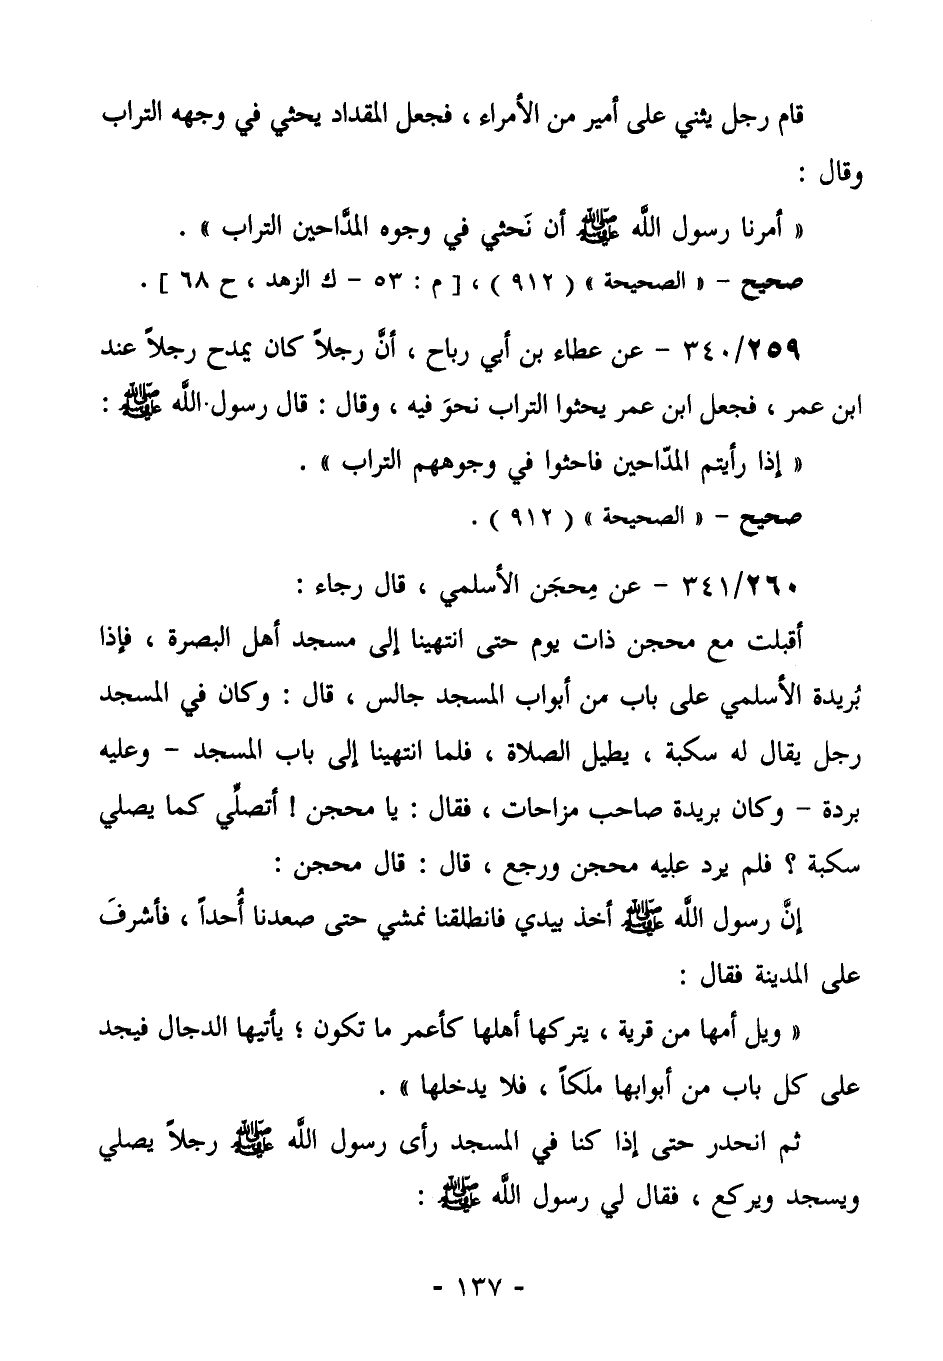 قام رجل يثني على أمير من الأمراء ، فجعل المقداد يحثي في وجهه التراب
وقال :
« أمرنا رسول اللَّه ﷺ أن نَحثي في وجوه المدَّاحين التراب » .
صحيح – « الصحيحة » ( ٩١٢ ) ، [ م : ٥٣ – ك الزهد ، ح ٦٨ ] .
٣٤٠/٢٥٩ – عن عطاء بن أبي رباح ، أنَّ رجلاً كان يمدح رجلاً عند
ابن عمر ، فجعل ابن عمر يحثوا التراب نحوَ فيه ، وقال : قال رسول اللَّه ﷺ :
« إذا رأيتم المدّاحين فاحثوا في وجوههم التراب » .
صحيح – « الصحيحة » ( ٩١٢ ) .
٣٤١/٢٦٠ – عن مِحجَن الأسلمي ، قال رجاء :
أقبلت مع محجن ذات يوم حتى انتهينا إلى مسجد أهل البصرة ، فإذا
بُريدة الأسلمي على باب من أبواب المسجد جالس ، قال : وكان في المسجد
رجل يقال له سكبة ، يطيل الصلاة ، فلما انتهينا إلى باب المسجد – وعليه
بردة – وكان بريدة صاحب مزاحات ، فقال : يا محجن ! أتصلِّي كما يصلي
سكبة ؟ فلم يرد عليه محجن ورجع ، قال : قال محجن :
إنَّ رسول اللَّه ﷺ أخذ بيدي فانطلقنا نمشي حتى صعدنا أُحداً ، فأشرفَ
على المدينة فقال :
« ويل أمها من قرية ، يتركها أهلها كأعمر ما تكون ؛ يأتيها الدجال فيجد
على كل باب من أبوابها ملَكاً ، فلا يدخلها » .
ثم انحدر حتى إذا كنا في المسجد رأى رسول اللَّه ﷺ رجلاً يصلي
ويسجد ويركع ، فقال لي رسول اللَّه ﷺ :
- ١٣٧ -